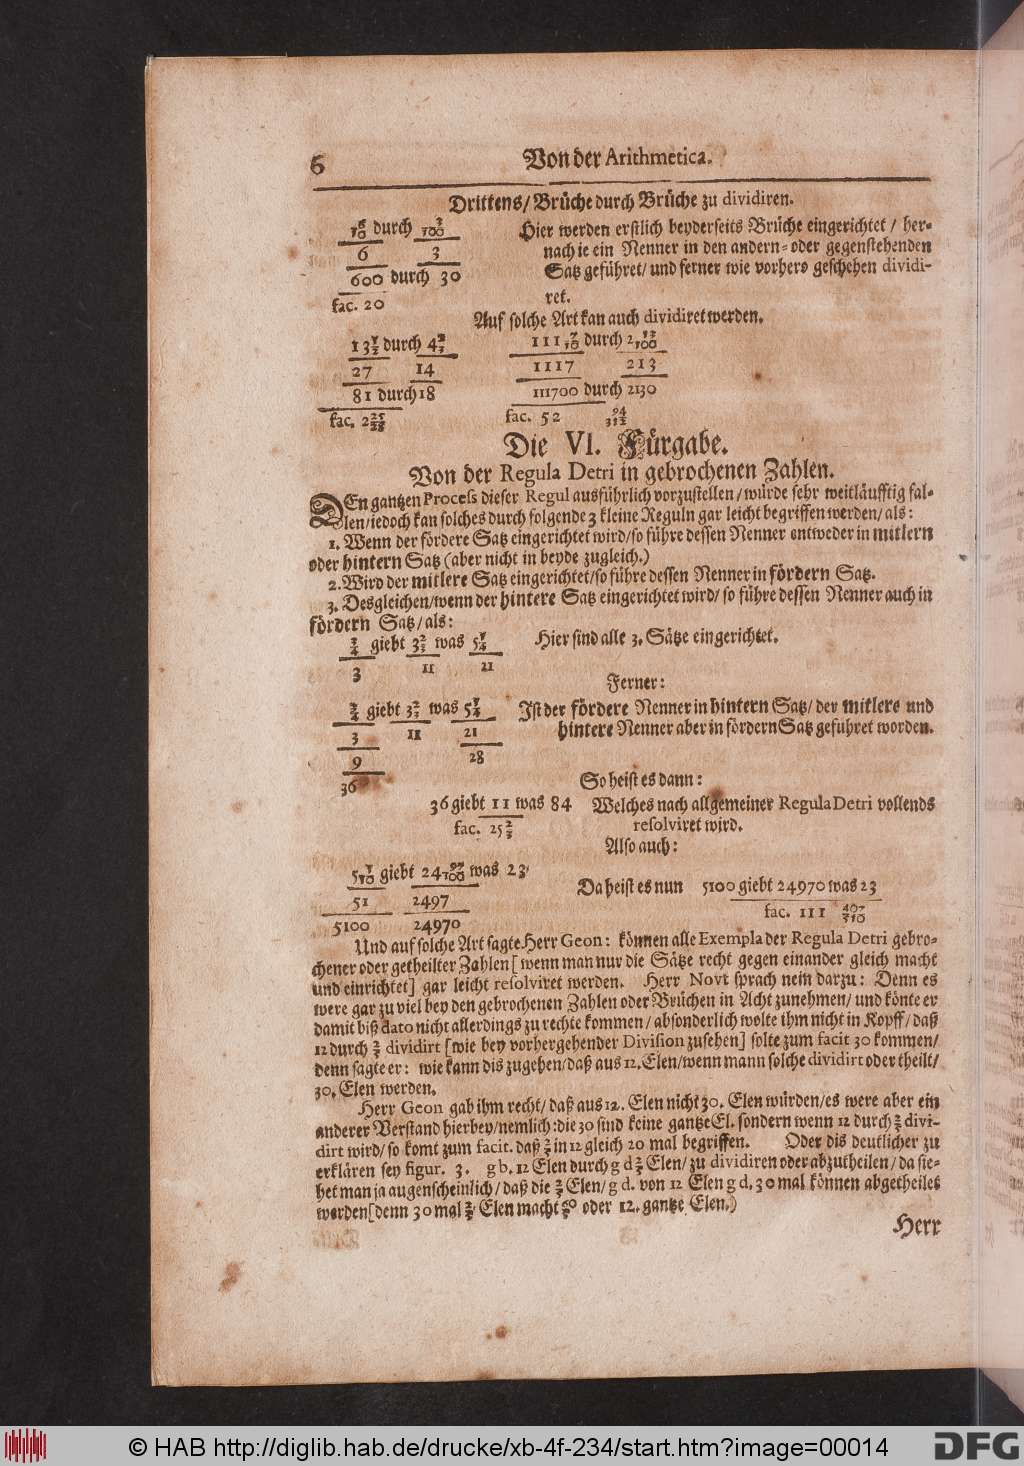 6 Von der Arithmetica.
Drittens/ Brüche durch Brüche zu dividiren.
6/10 durch 3/100 Hier werden erstlich beyderseits Brüche eingerichtet / her-
6 3 nach ie ein Nenner in den andern- oder gegenstehenden
600 durch 30 Satz geführet/ und ferner wie vorhero geschehen dividi-
fac. 20 ret.
Auf solche Art kan auch dividiret werden.
13 1/2 durch 4 2/3 111 7/10 durch 2 13/100
27 14 1117 213
81 durch 18 111700 durch 2130
fac. 2 25/28 fac. 52
Die VI. Fürgabe.
Von der Regula Detri in gebrochenen Zahlen.
DEn gantzen Process dieser Regul ausführlich vorzustellen/ würde sehr weitläufftig fal-
len/ iedoch kan solches durch folgende 3 kleine Reguln gar leicht begriffen werden/ als:
1. Wenn der fördere Satz eingerichtet wird/ so führe dessen Nenner entweder in mitlern
oder hintern Satz (aber nicht in beyde zugleich.)
2. Wird der mitlere Satz eingerichtet/ so führe dessen Nenner in fördern Satz.
3. Desgleichen/ wenn der hintere Satz eingerichtet wird/ so führe dessen Nenner auch in
fördern Satz/ als:
3/4 giebt 3 2/3 was 5 1/4 Hier sind alle 3. Sätze eingerichtet.
3 11 21
Ferner:
3/4 giebt 3 2/3 was 5 1/4 Ist der fördere Nenner in hintern Satz/ der mitlere und
3 11 21 hintere Nenner aber in fördern Satz geführet worden.
9 28
36 So heist es dann:
36 giebt 11 was 84 Welches nach allgemeiner Regula Detri vollends
fac. 25 2/3 resolviret wird.
Also auch:
5 1/10 giebt 24 97/100 was 23 Da heist es nun 5100 giebt 24970 was 23
51 2497 fac. 111
5100 24970
Und auf solche Art sagte Herr Geon: können alle Exempla der Regula Detri gebro-
chener oder getheilter Zahlen [wenn man nur die Sätze recht gegen einander gleich macht
und einrichtet] gar leicht resolviret werden. Herr Novt sprach nein darzu: Denn es
were gar zu viel bey den gebrochenen Zahlen oder Brüchen in Acht zunehmen/ und könte er
damit biß dato nicht allerdings zu rechte kommen/ absonderlich wolte ihm nicht in Kopff/ daß
12 durch 2/5 dividirt [wie bey vorhergehender Division zusehen] solte zum facit 30 kommen/
denn sagte er: wie kann dis zugehen/ daß aus 12. Elen/ wenn mann solche dividirt oder theilt/
30. Elen werden.
Herr Geon gab ihm recht/ daß aus 12. Elen nicht 30. Elen würden/ es were aber ein
anderer Verstand hierbey/ nemlich: die 30 sind keine gantze El. sondern wenn 12 durch 2/5 divi-
dirt wird/ so komt zum facit. daß 2/5 in 12 gleich 20 mal begriffen. Oder dis deutlicher zu
erklären sey figur. 3. g b. 12 Elen durch g d 2/5 Elen/ zu dividiren oder abzutheilen/ da sie-
het man ja augenscheinlich/ daß die 2/5 Elen/ g d. von 12 Elen g d. 30 mal können abgetheilet
werden [denn 30 mal 2/5 Elen macht 60/5 oder 12. gantze Elen.)
Herr
© HAB http://diglib.hab.de/drucke/xb-4f-234/start.htm?image=00014
DFG